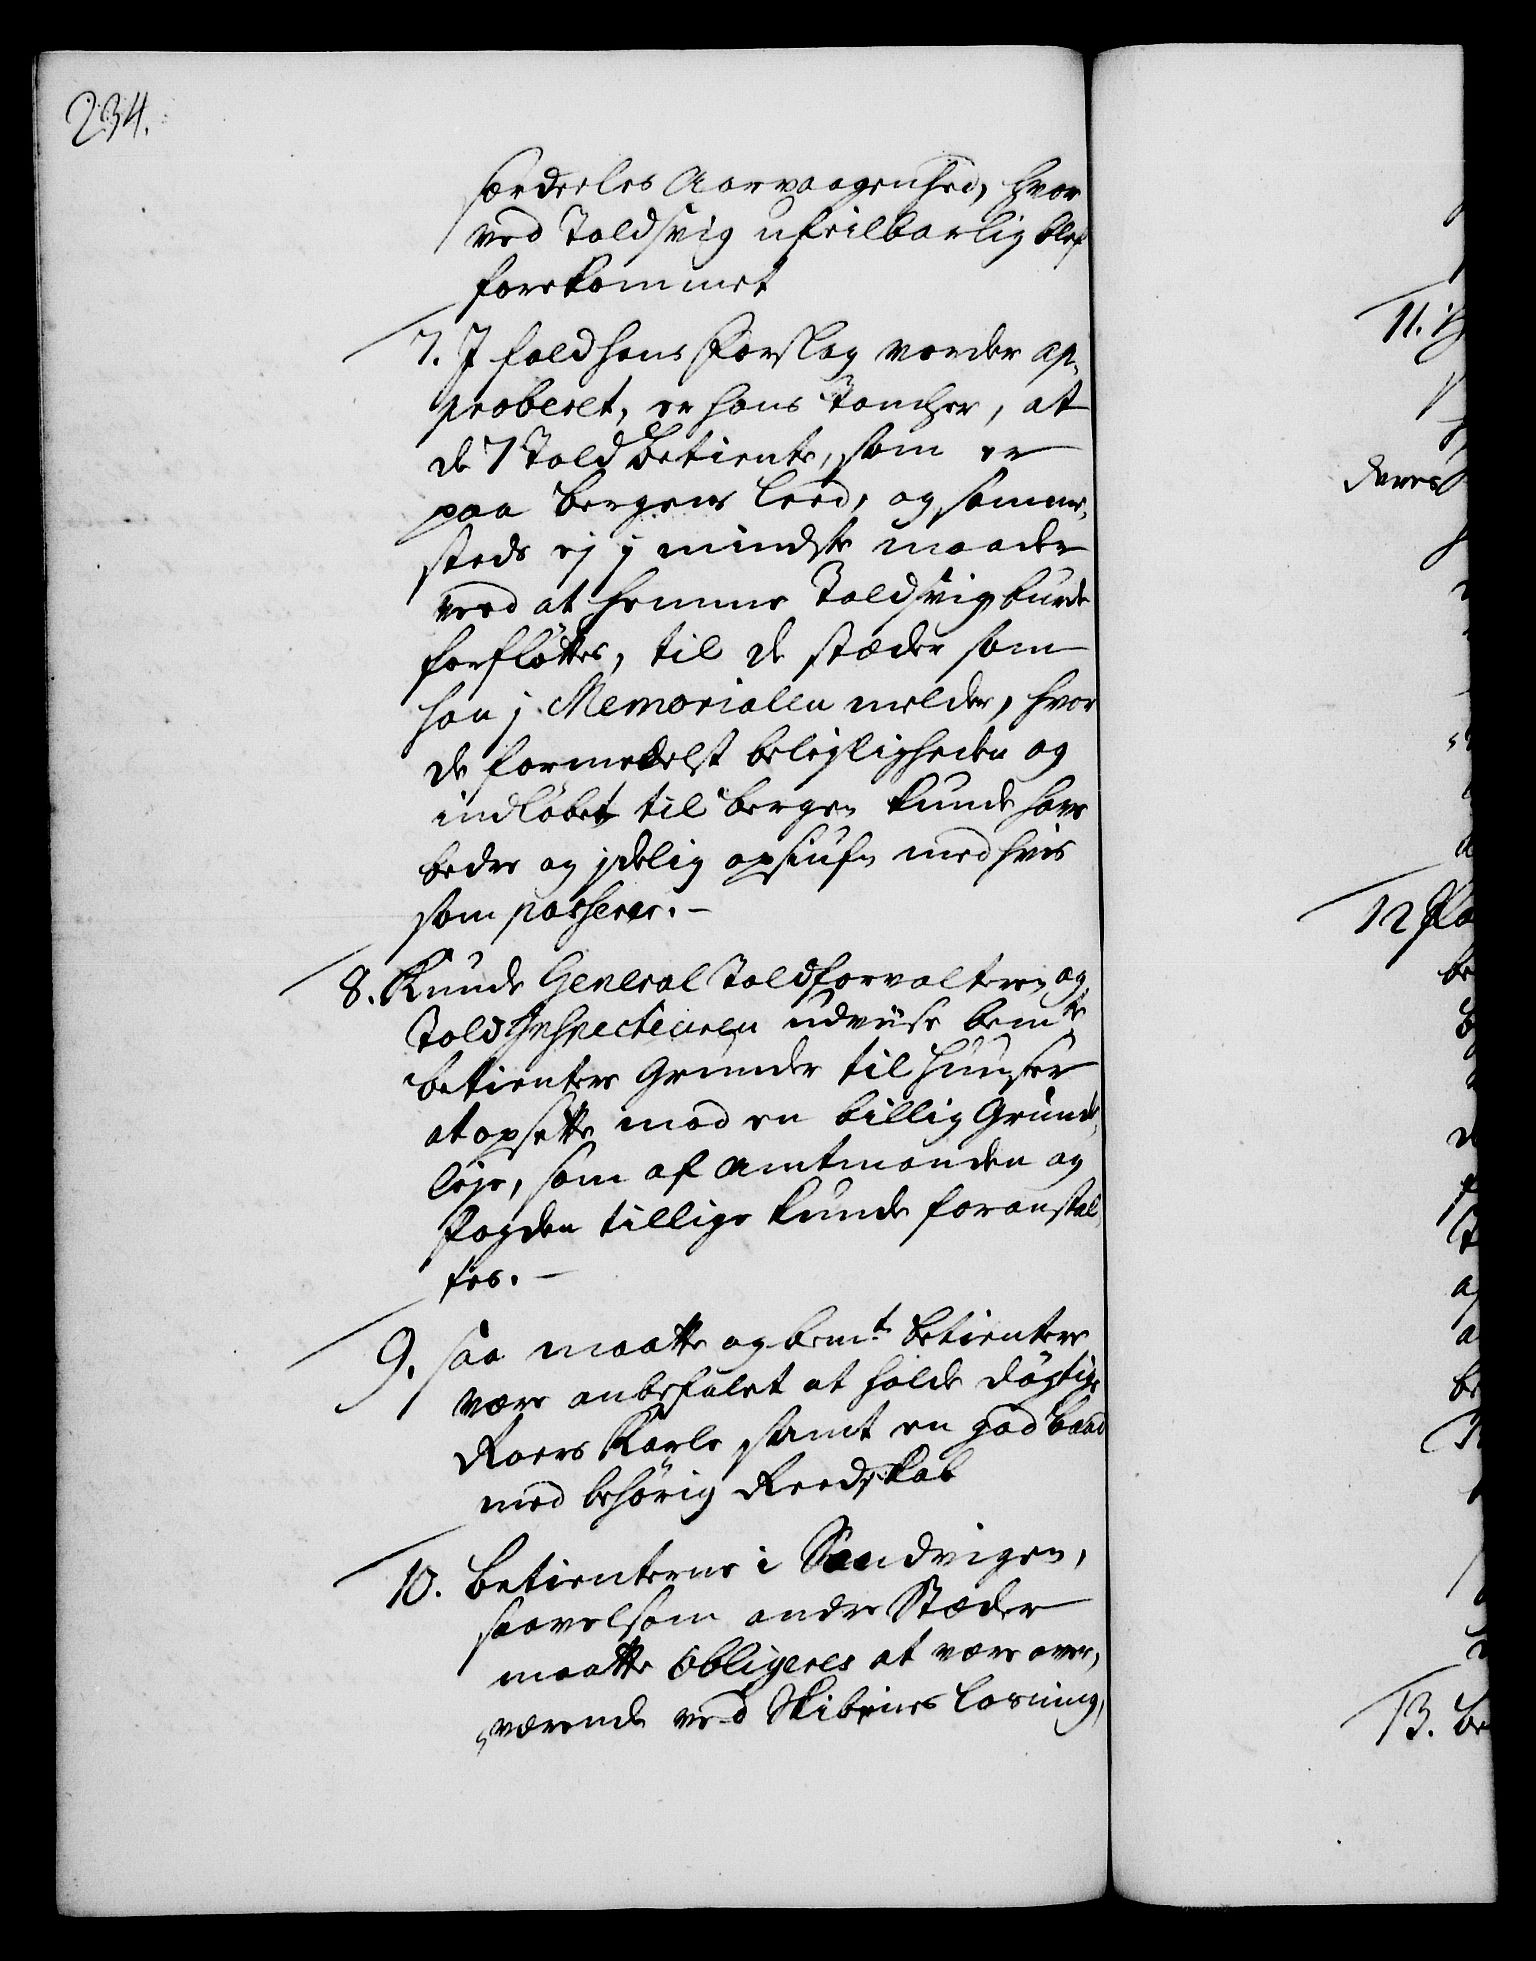 234.
særdeeles Aarvaagenhed, hvor
ved Toldsvig ufeilbarlig blef
forekommet
7. I fald hans Forslag vorder ap-
proberet, er hans Tancher, at
de 7 Told Betiente, som er
paa Bergens Leed, og samme-
steds ej j mindste maader
veed at hemme Toldsvig burde
forfløttes, til de stæder som
han j Memorialen melder, hvor
de formedelst beleyligheden og
indløbet til Bergen kunde have
bedre og jdelig opsiufn med hvis
som passerer. –
8. Kunde General Toldforvalteren og
Told Inspecteuren udviise bemte
betientere Grunder til Huuser
at opsette mod en billig Grund-
leje, som af Amtmanden og
Fogden tillige kunde foranstal-
tes. –
9. Saa maatte og bemt betientere
være anbefalet at holde døgtige
Roers Karle samt en god Baad
med behørig Reedskab
10. Betienterne i Sandvigen,
saavelsom andre Stæder
maatte obligeres at være over-
værende ved Skibenes Losning,
11.
deres
12
13.